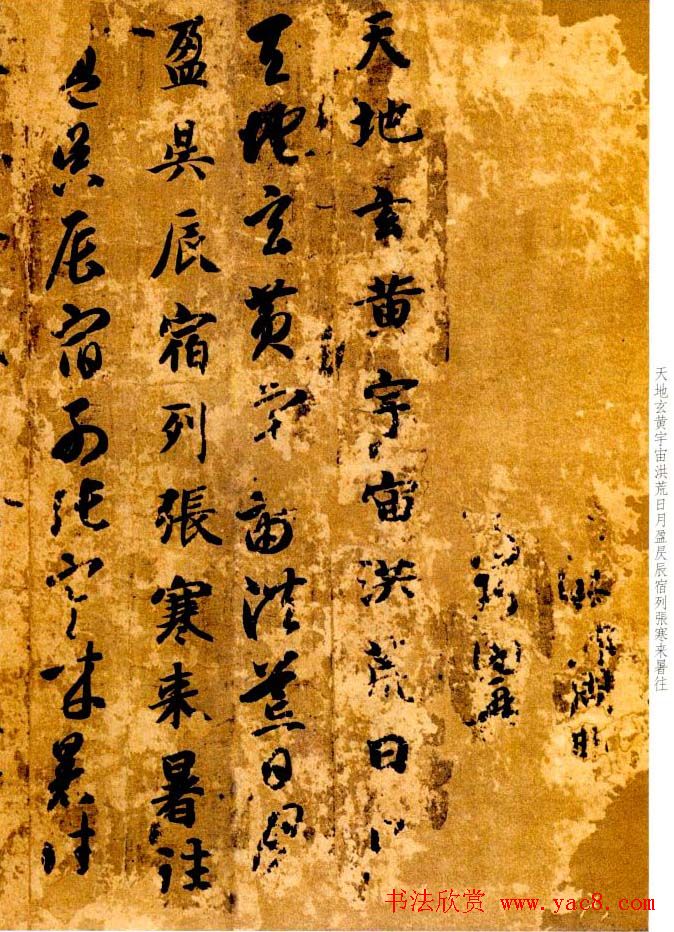 天地玄黄宇宙洪荒日月盈昃辰宿列張寒来暑往
天地玄黄宇宙洪荒日月
天地玄黄宇宙洪荒日月
盈昃辰宿列張寒来暑往
盈昃辰宿列張寒来暑往
书法欣赏 www.yac8.com